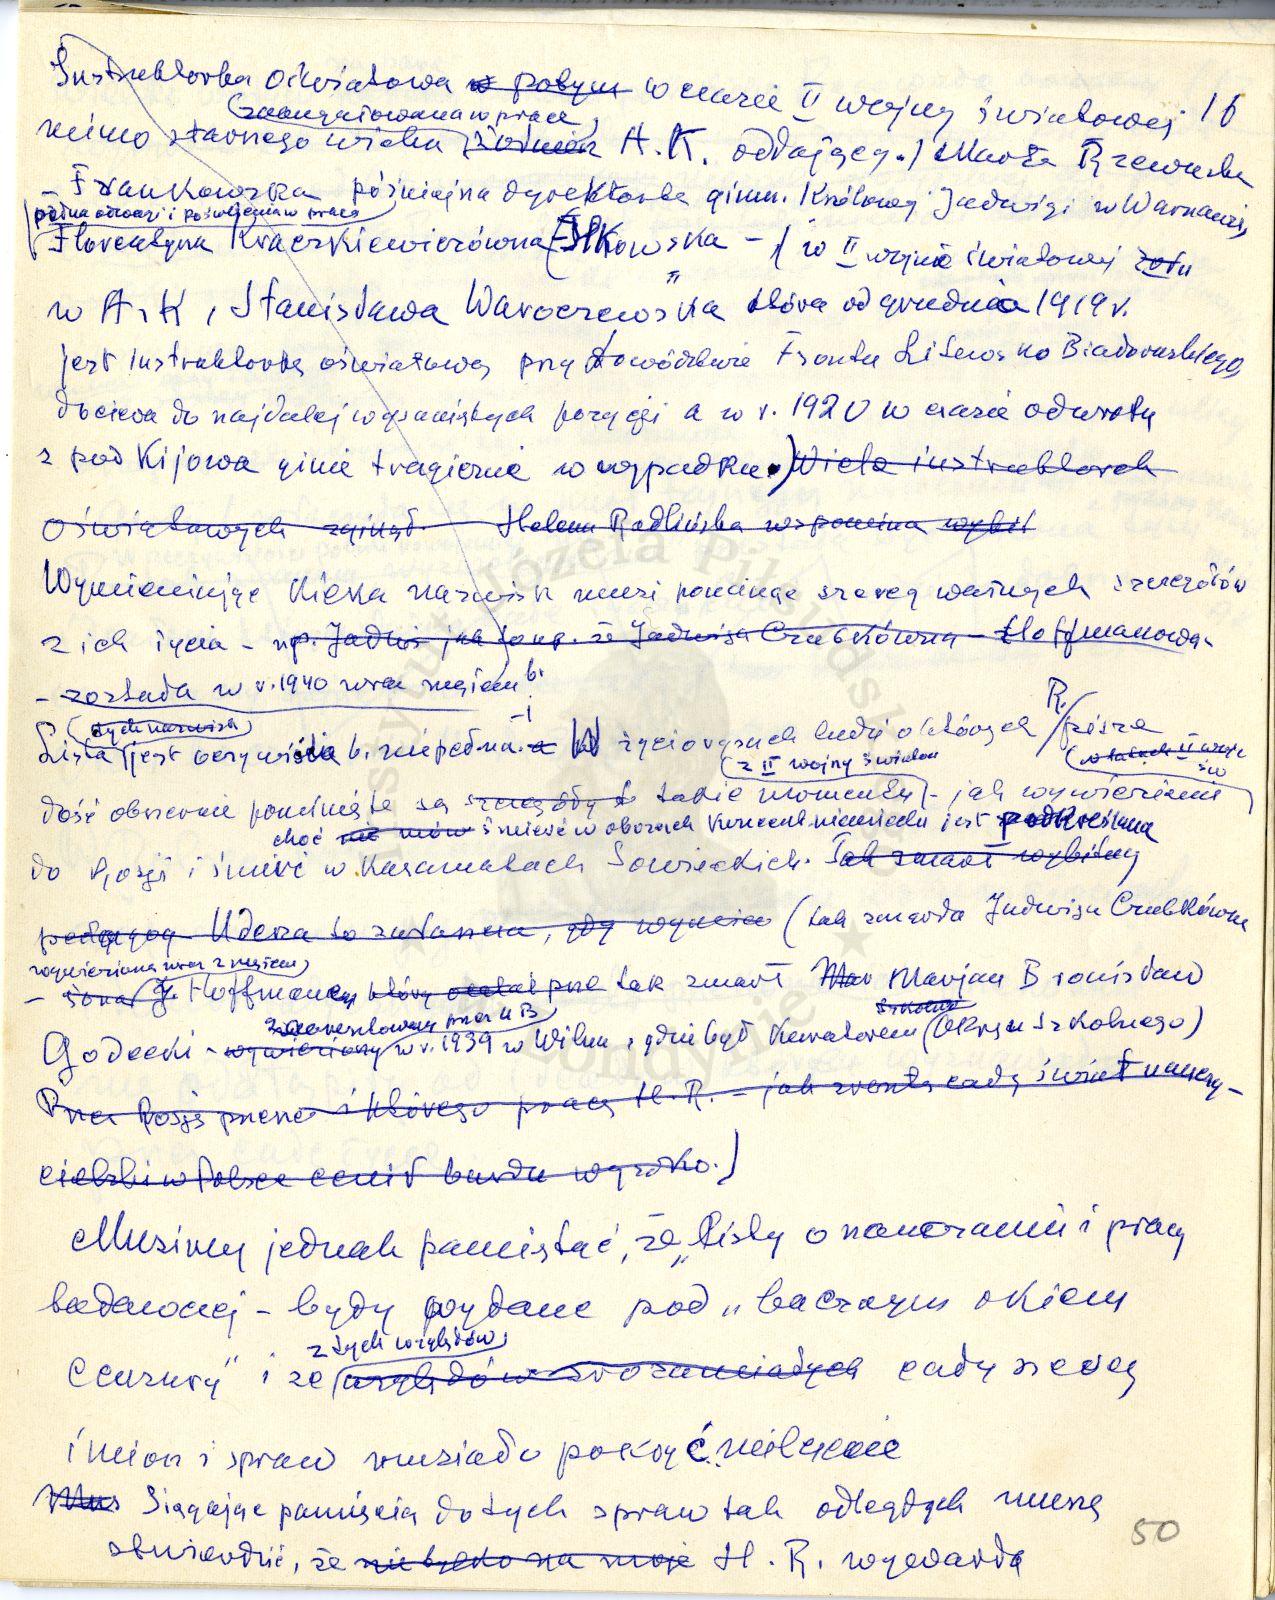 Instruktorka oświatowa w potym w czasie II wojny światowej 16
zaangażowana w pracę
mimo starszego wieku żołnierz A.K. oddającej / Marta Rzewuska
- Frankowska późniejsza dyrektorka gimn. Królowej Jadwigi w Warszawie,
pełna odwagi i poświęcenia w pracy
Florentyna Kraczkiewiczówna - (w II wojnie światowej
w A.K, Stanisława Waroczewska która od grudnia 1919 r.
jest instruktorką oświatową przy Dowództwie Frontu Litewsko Białoruskiego,
dociera do najdalej wysuniętych pozycji a w r. 1920 w czasie odwrotu
z pod Kijowa ginie tragicznie w wypadku.) Wiele instruktorek
oświatowych zginęło. Helena Radlińska wspomina
Wymieniając kilka nazwisk muszę pominąć szereg ważnych szczegółów
z ich życia - np. Jadwi jak to np. że Jadwiga Czubkówna - Hoffmanowa -
- została w r. 1940 wraz mężem b.
tych nazwisk
Lista jest oczywiście b. niepełna - W życiorysach ludzi o których R. pisze
z II wojny świato w latach II wojn św
dość obszernie pominięte są szczegóły takie momenty - jak wywiezienie
choć śmierć w obozach koncent. niemieckich jest podkreślana
do Rosji i śmierć w kazamatach Sowieckich. Tak zmarł wybitny
pedagog - Uderza to zwłaszcza, gdy (tak zmarła Jadwiga Czubkówna
wywieziona wraz z mężem,
- żona J. Hoffmana, tak zmarł Marjan Bronisław
zaaresztowany przez
Godecki - wywieziony w r. 1939 w Wilnie, gdzie był Kuratorem (Okręgu Szkolnego)
Przez Rosję i którego pracę H.R. - jak zresztą cały świat nauczy-
cielski w Polsce cenił bardzo wysoko.)
Musimy jednak pamiętać, że „Listy o nauczaniu i pracy
badawczej - były wydane pod „bacznym okiem
z tych względów,
Cenzury" i że względów zrozumiałych cały szereg
imion i spraw musiało pokryć milczenie
Mus Sięgając pamięcią do tych spraw tak odległych muszę
stwierdzić, że nie tylko na moje H. R. wywarła
50